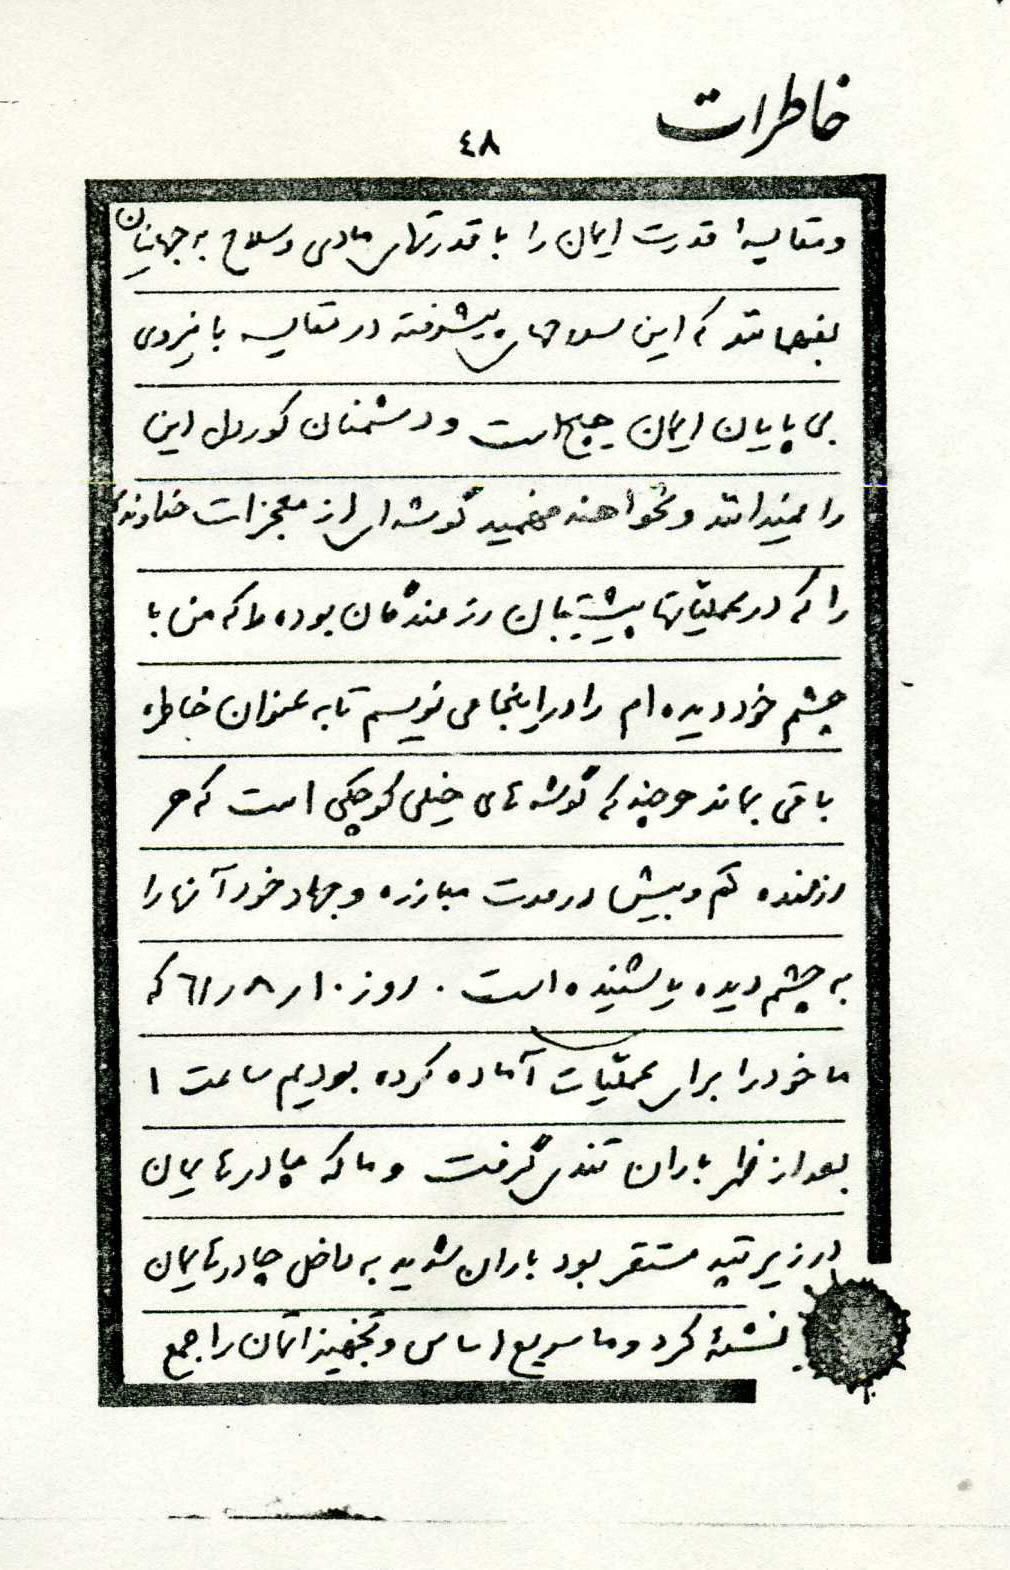 خاطرات
٤٨
و مقایسهٔ قدرت ایمان را با قدرتهای مادی و سلاح به جهانیان
بفهمانند که این سلاحهای پیشرفته در مقایسه با نیروی
بی پایان ایمان هیچ است و دشمنان کوردل این
را نمیدانند و نخواهند فهمید گوشه ای از معجزات خداوند
را که در عملیاتها پیشتیبان رزمندگان بوده را که من با
چشم خود دیده ام را در اینجا می نویسم تا به عنوان خاطره
باقی بماند هر چند که گوشه های خیلی کوچکی است که هر
رزمنده کم و بیش در مدت مبارزه و جهاد خود آنها را
به چشم دیده یا شنیده است . روز ١٠ر٨ر٦١ که
ما خود را برای عملیات آماده کرده بودیم ساعت ١
بعد از ظهر باران تندی گرفت و ما که چادرهایمان
در زیر تپه مستقر بود باران شدید به داخل چادرهایمان
نشئه کرد و ما سریع اساس و تجهیزاتمان را جمع